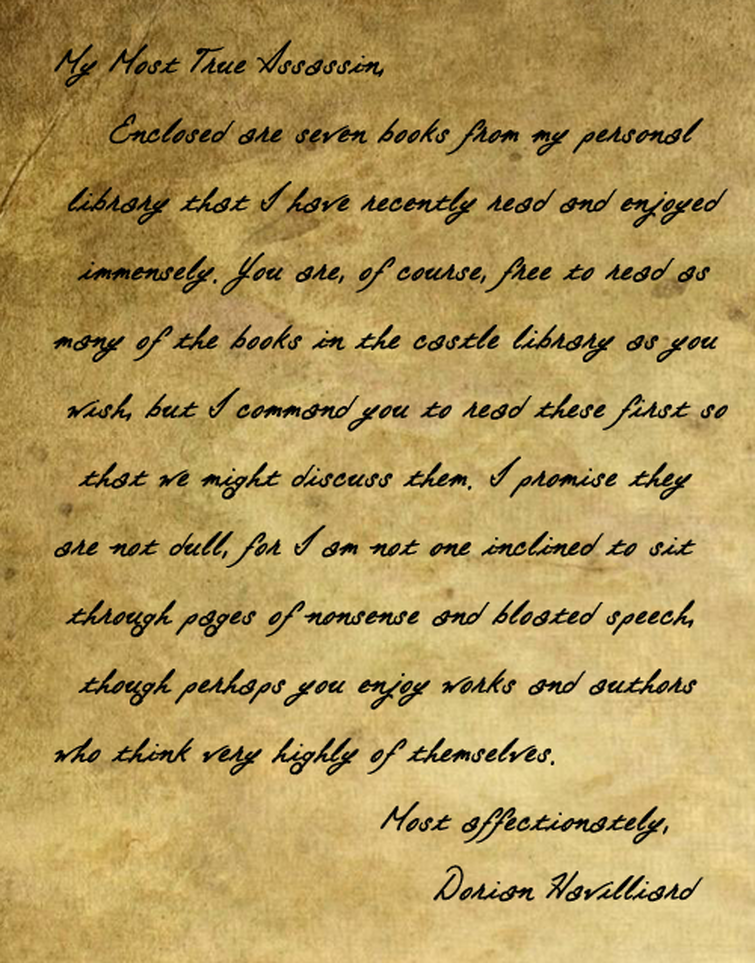 My Most True Assassin,
Enclosed are seven books from my personal
library that I have recently read and enjoyed
immensely. You are, of course, free to read as
many of the books in the castle library as you
wish, but I command you to read these first so
that we might discuss them. I promise they
are not dull, for I am not one inclined to sit
through pages of nonsense and bloated speech,
though perhaps you enjoy works and authors
who think very highly of themselves.
Most affectionately,
Dorian Havilliard